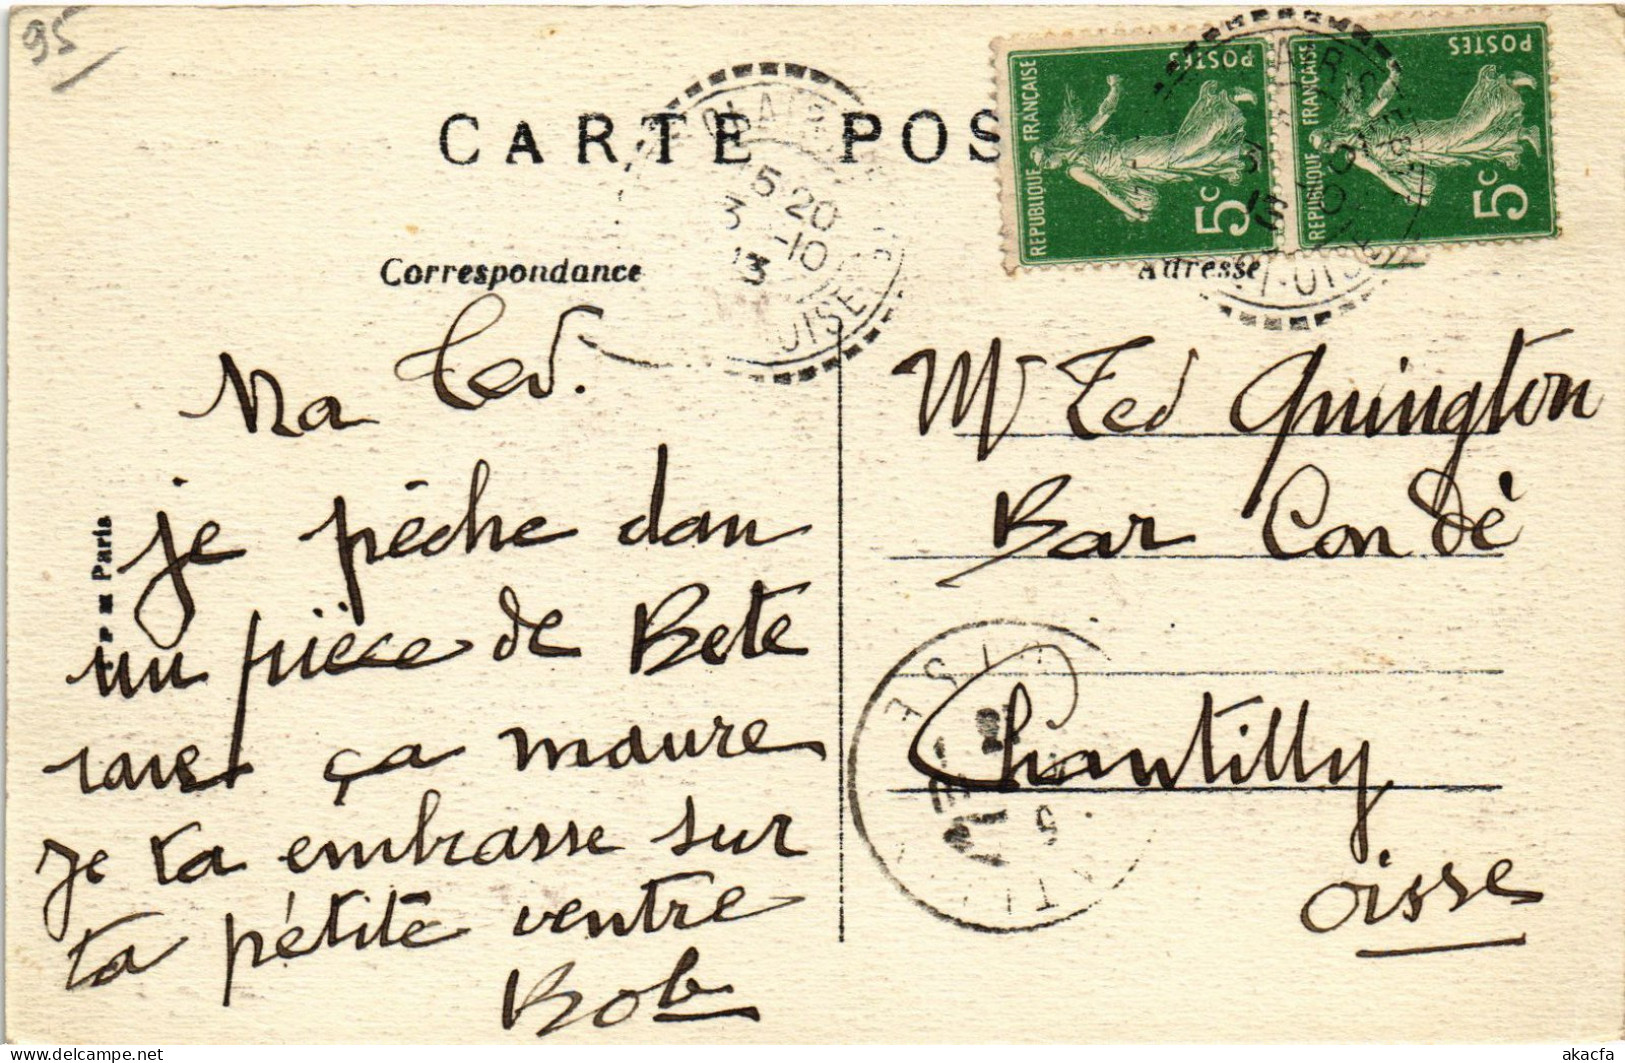 95
CARTE POS
REPUBLIQUE FRANÇAISE
POSTES
5c
REPUBLIQUE FRANÇAISE
POSTES
5c
15 20
3 -10
13
Correspondance
Adresse
Ma Ted.
je pêche dan
un pièce de Bete
rare ça maure
Je ta embrasse sur
ta pétite ventre
Bob
Paris
Mr Ted Quington
Bar Condè
Chantilly
Oisse
OISE
akacfa